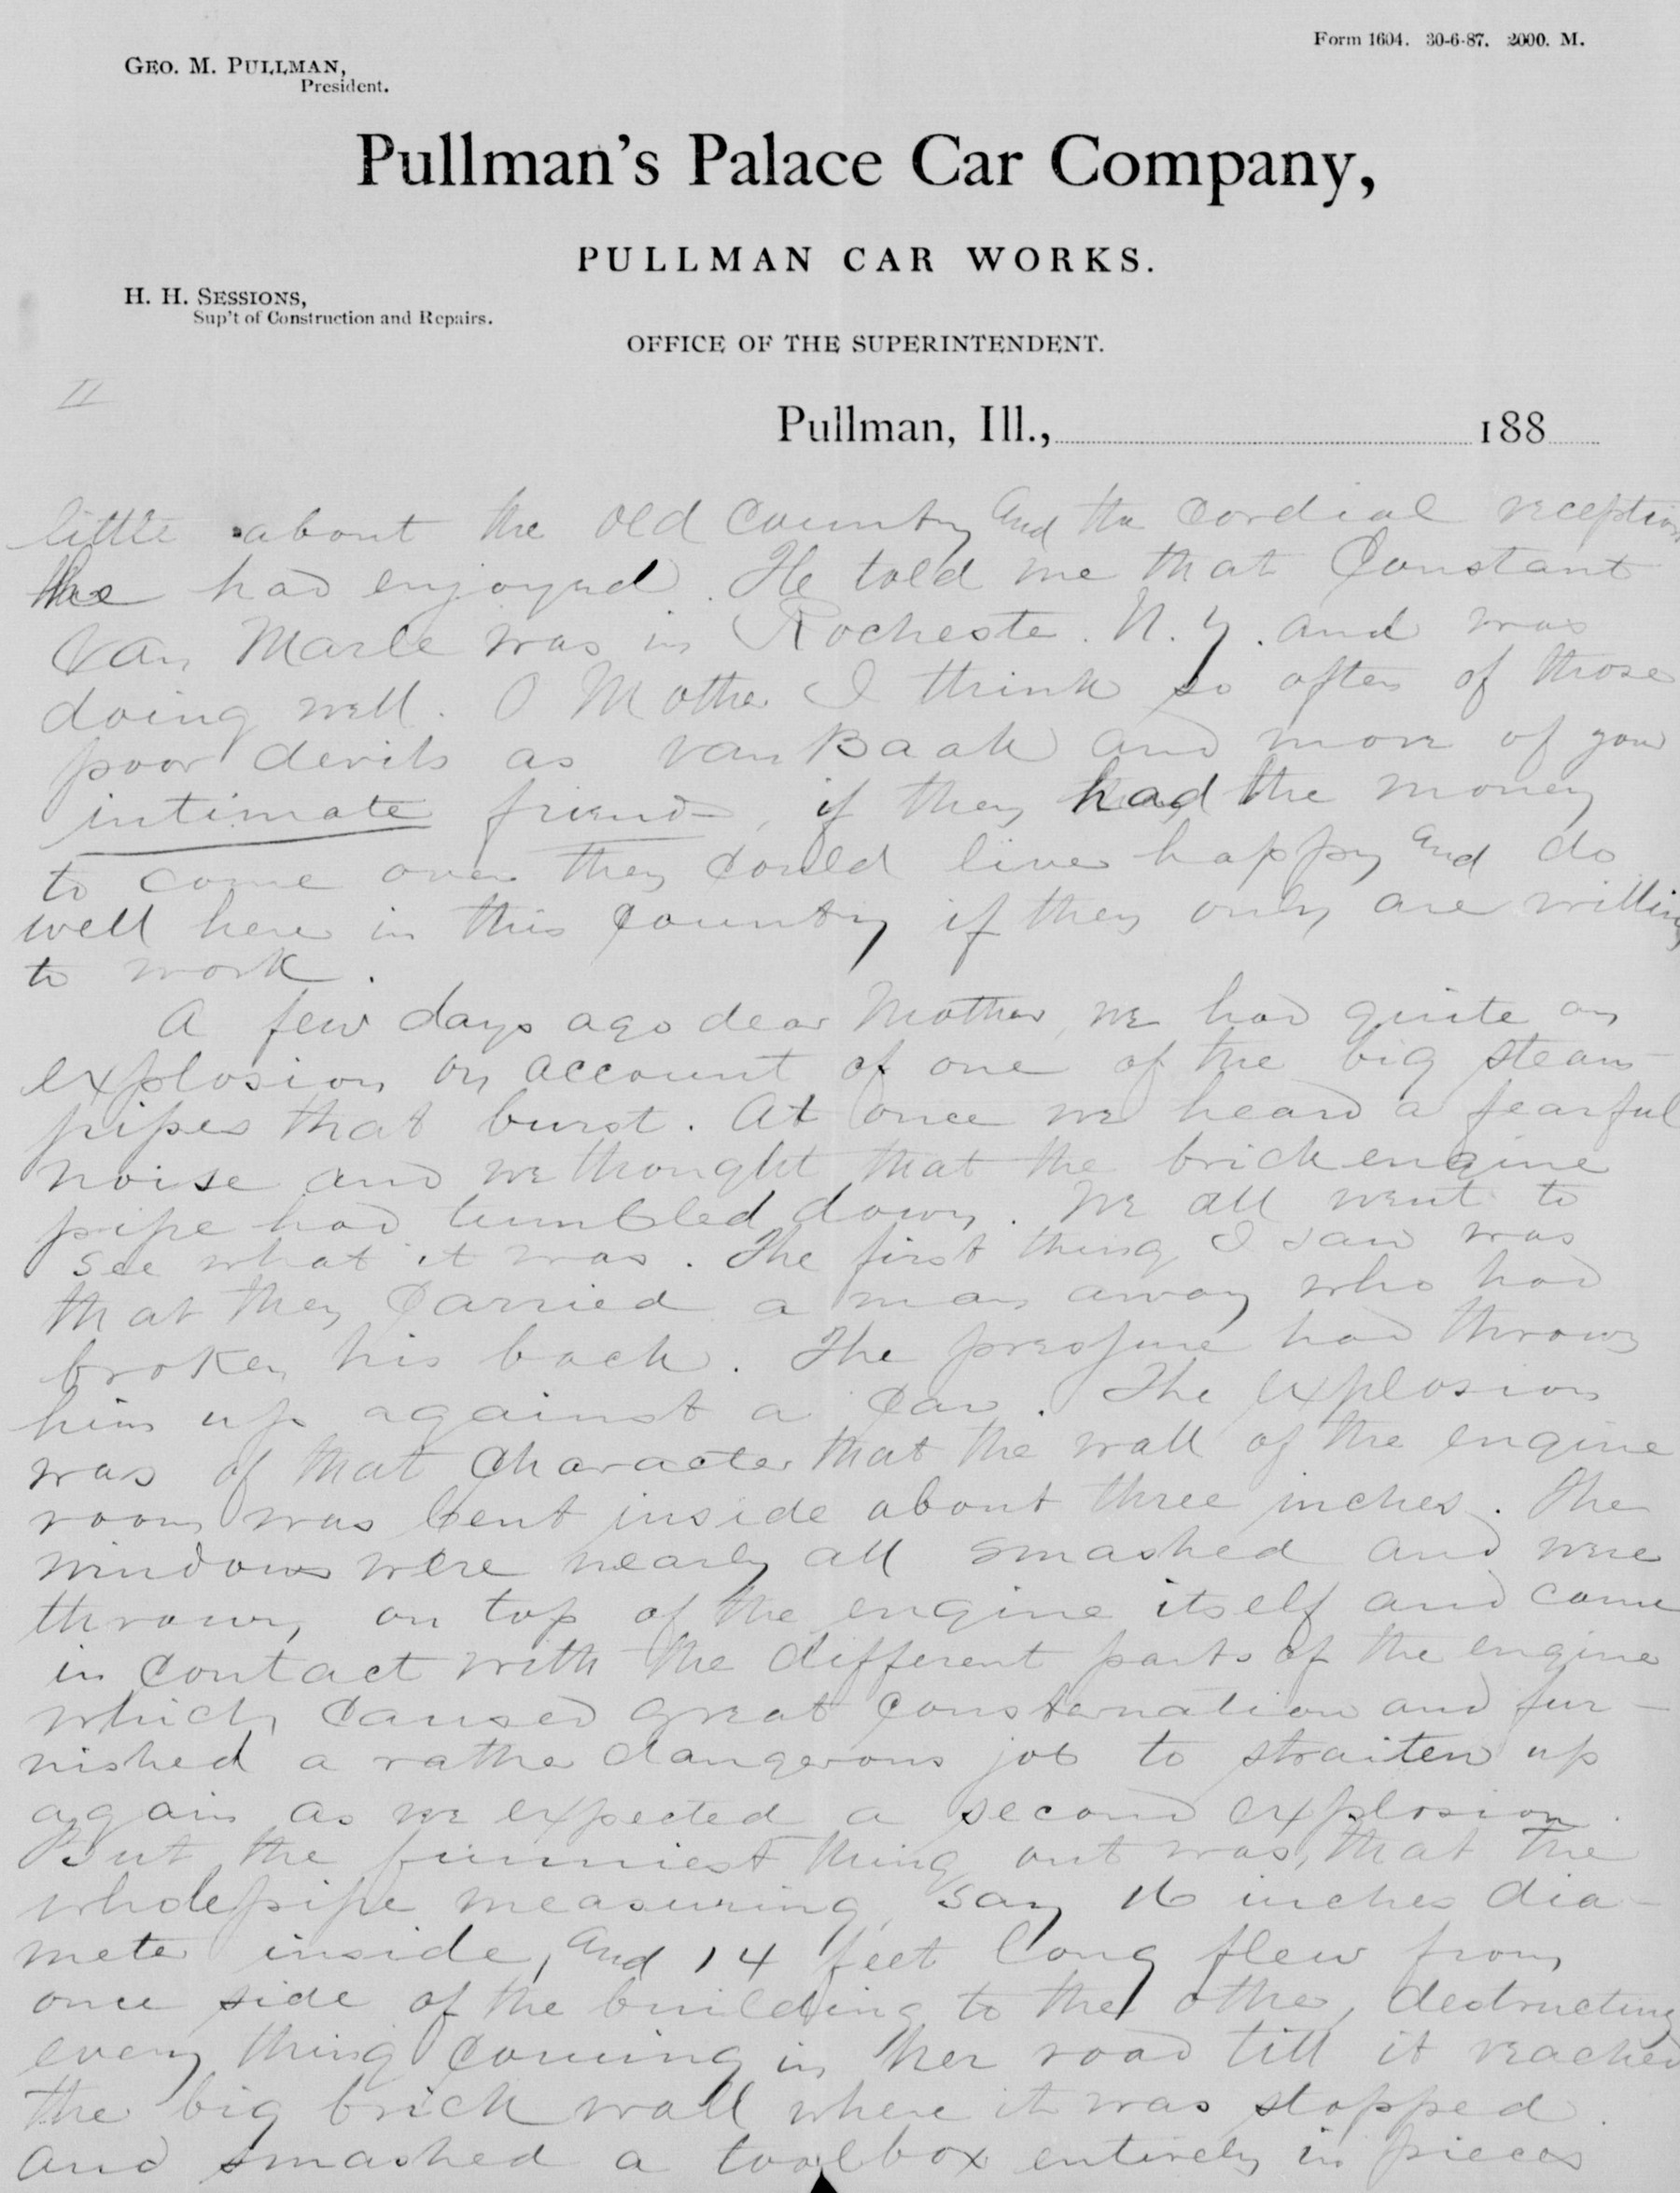 Form 1604. 30-6-87. 2000. M.
GEO. M. PULLMAN,
President.
Pullman's Palace Car Company,
PULLMAN CAR WORKS.
H. H. SESSIONS,
Sup't of Construction and Repairs.
OFFICE OF THE SUPERINTENDENT.
II
Pullman, Ill., 188
little about the old country and the cordial reception
he had enjoyed. He told me that Constant
van Marle was in Rochester. N.Y. and was
doing well. O Mother I think so often of those
poor devils as van Baak and more of your
intimate friends, if they had the money
to come over they could live happy and do
well here in this country if they only are willing
to work.
A few days ago dear Mother, we had quite an
explosion on account of one of the big steam
pipes that burst. At once we heard a fearful
noise and we thought that the brick engine
pipe had tumbled down. We all went to
see what it was. The first thing I saw was
that they carried a man away who had
broken his back. The pressure had thrown
him up against a car. The explosion
was of that character that the wall of the engine
room was bent inside about three inches. The
windows were nearly all smashed and were
thrown on top of the engine itself and came
in contact with the different parts of the engine
which caused great consternation and fur-
nished a rather dangerous job to straiten up
again as we expected a second explosion.
But the funniest thing out was, that the
whole pipe measuring, say 16 inches dia-
meter inside, and 14 feet long flew from
once side of the building to the other, destructing
every thing coming in her road till it reached
the big brick wall where it was stopped.
and smashed a toolbox entirely in pieces